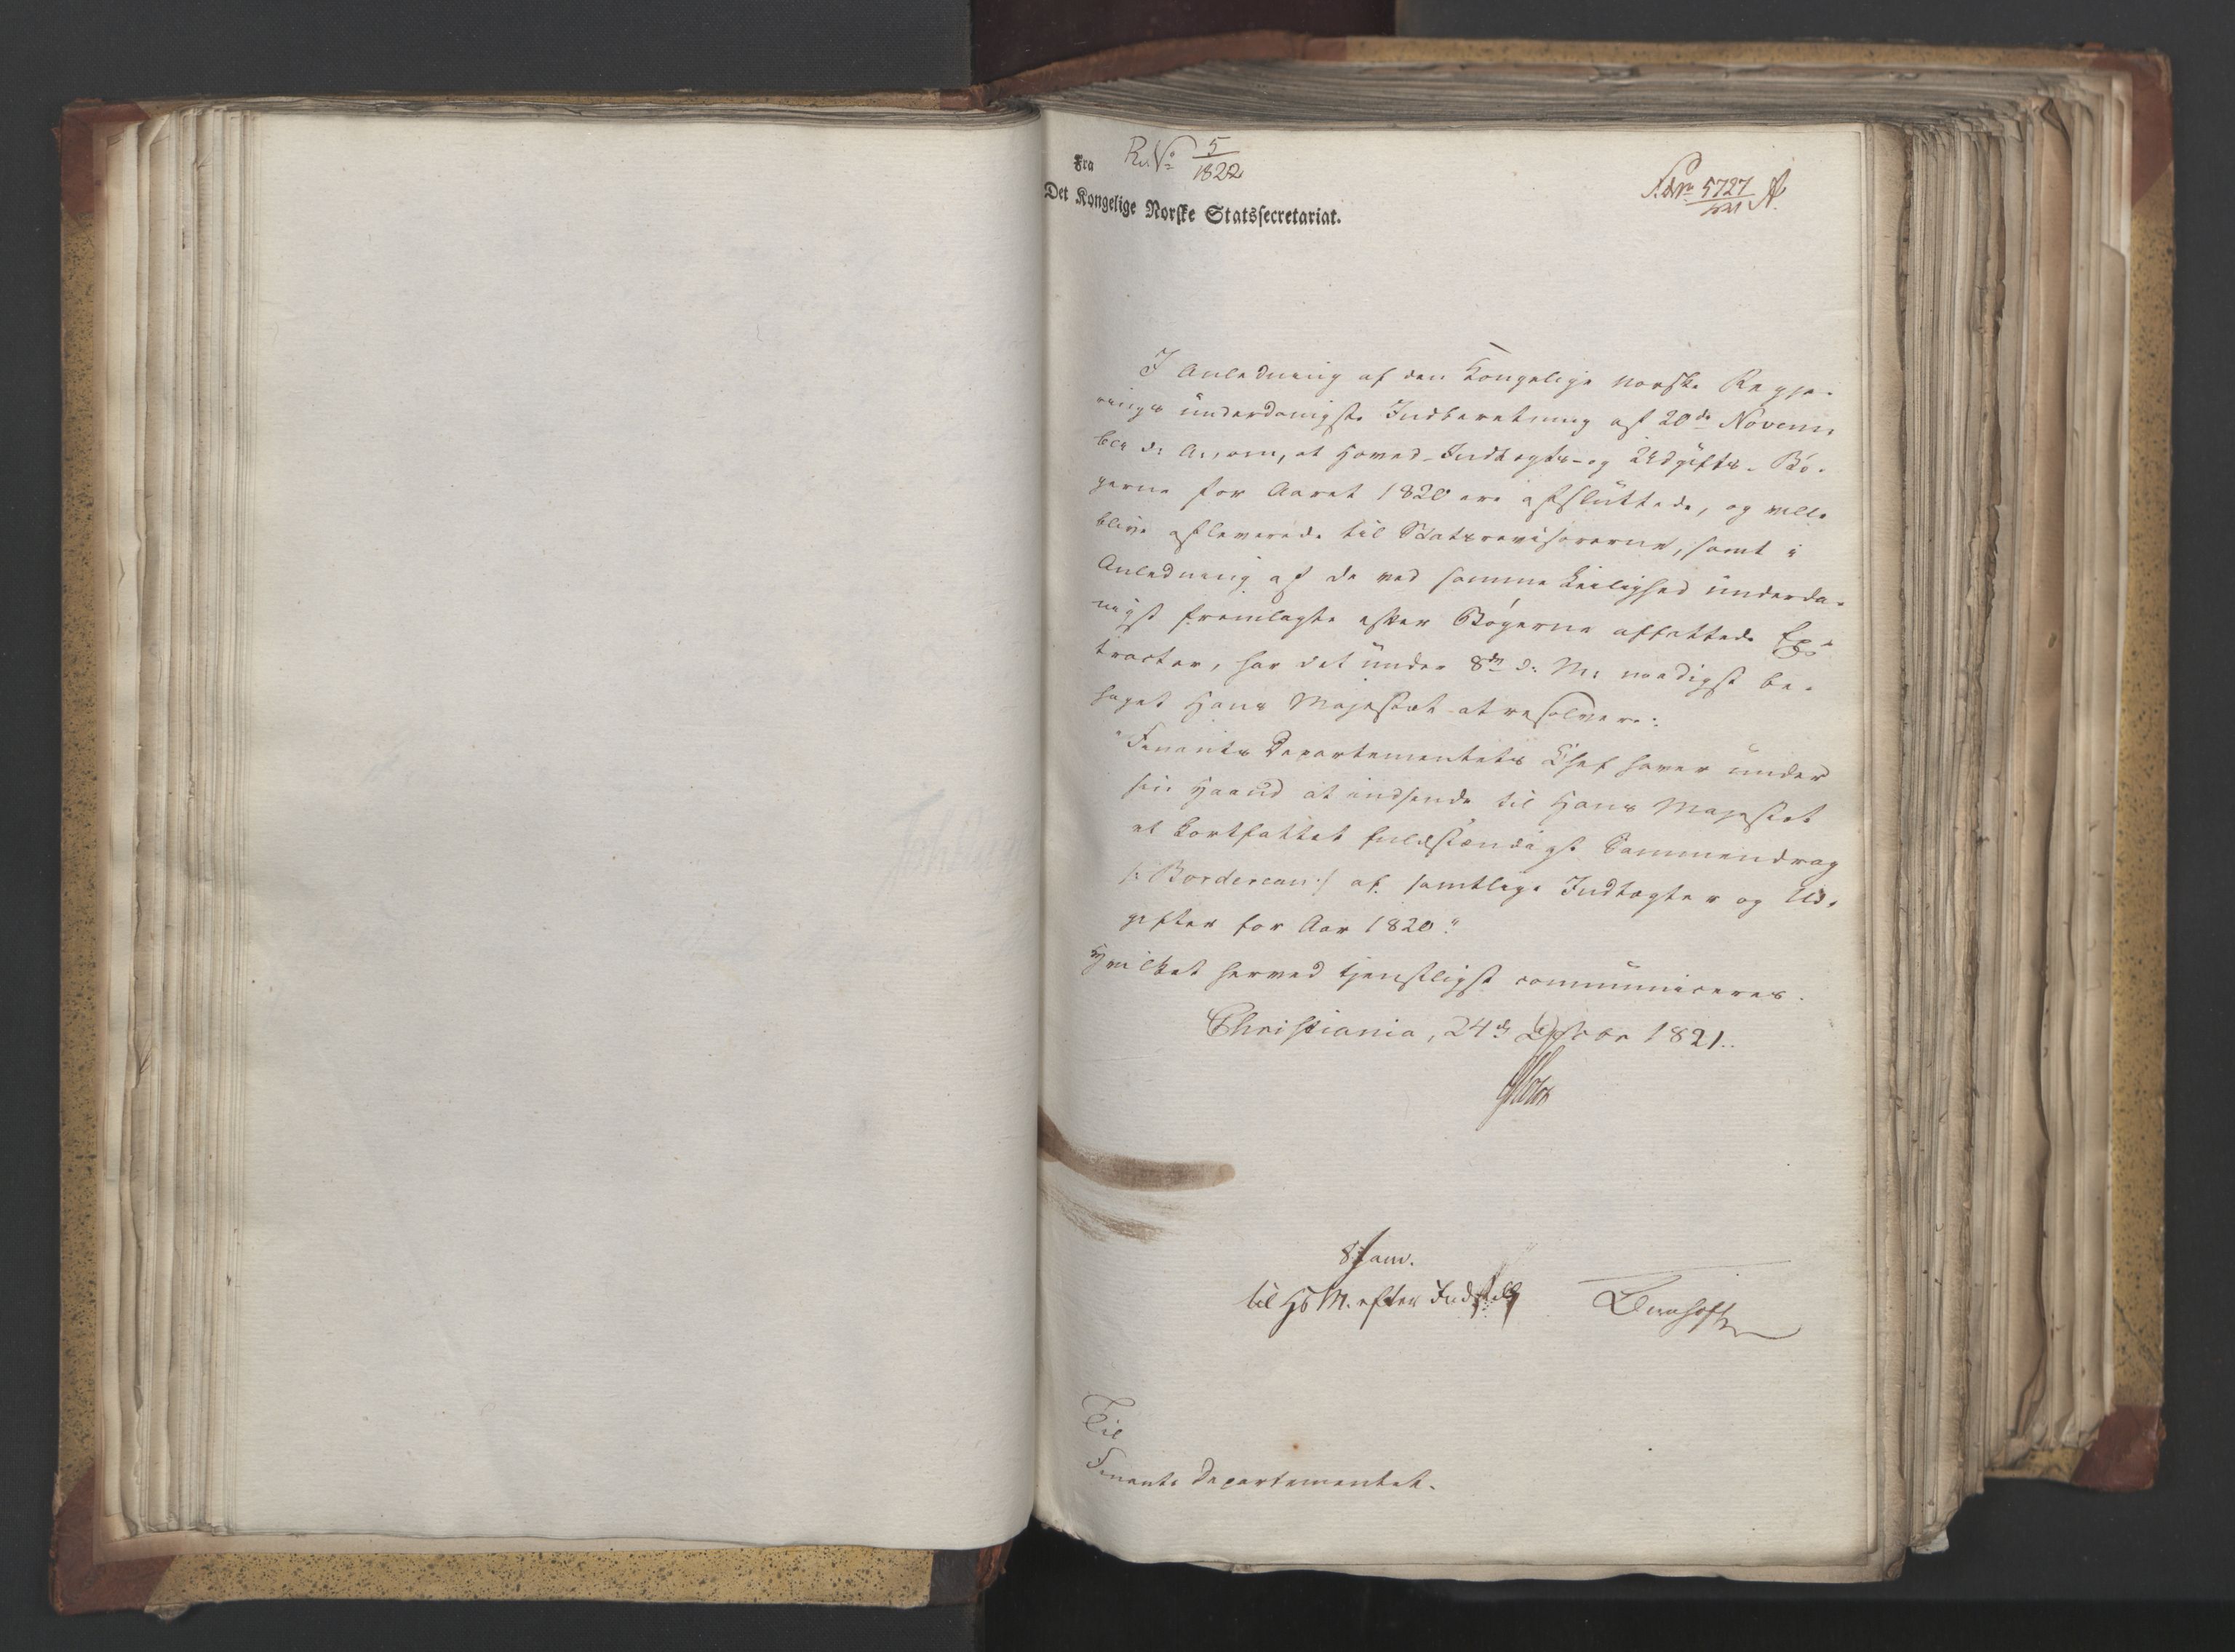 Fra R. No 5/1822
No 5727/1821 A.
Det Kongelige Norske Statssecretariat.
I Anledning af den Kongelige norske Regje-
rings underdanigste Indberetning af 20de Novem-
ber d: A:, om, at Hoved-Indtægts- og Udgifts-Bø-
gerne for Aaret 1820 ere afsluttede, og ville
blive afleverede til Statsrevisorerne, samt i
Anledning af de ved samme Leilighed underda-
nigst fremlagte efter Bøgerne affattede Ex-
tracter, har det under 8de d: M: naadigst be-
haget Hans Majestæt at resolvere:
"Finants Departementets Chef haver under
sin Haand at indsende til Hans Majestæt
et kortfattet fuldstændigt Sammendrag
/: Bordereau :/ af samtlige Indtægter og Ud-
gifter for Aar 1820."
Hvilket herved tjenstligst communiceres.
Christiania, 24de Decbr 1821.
8 Janv.
til Hs M. efter Indstill
Til
Finants Departementet.